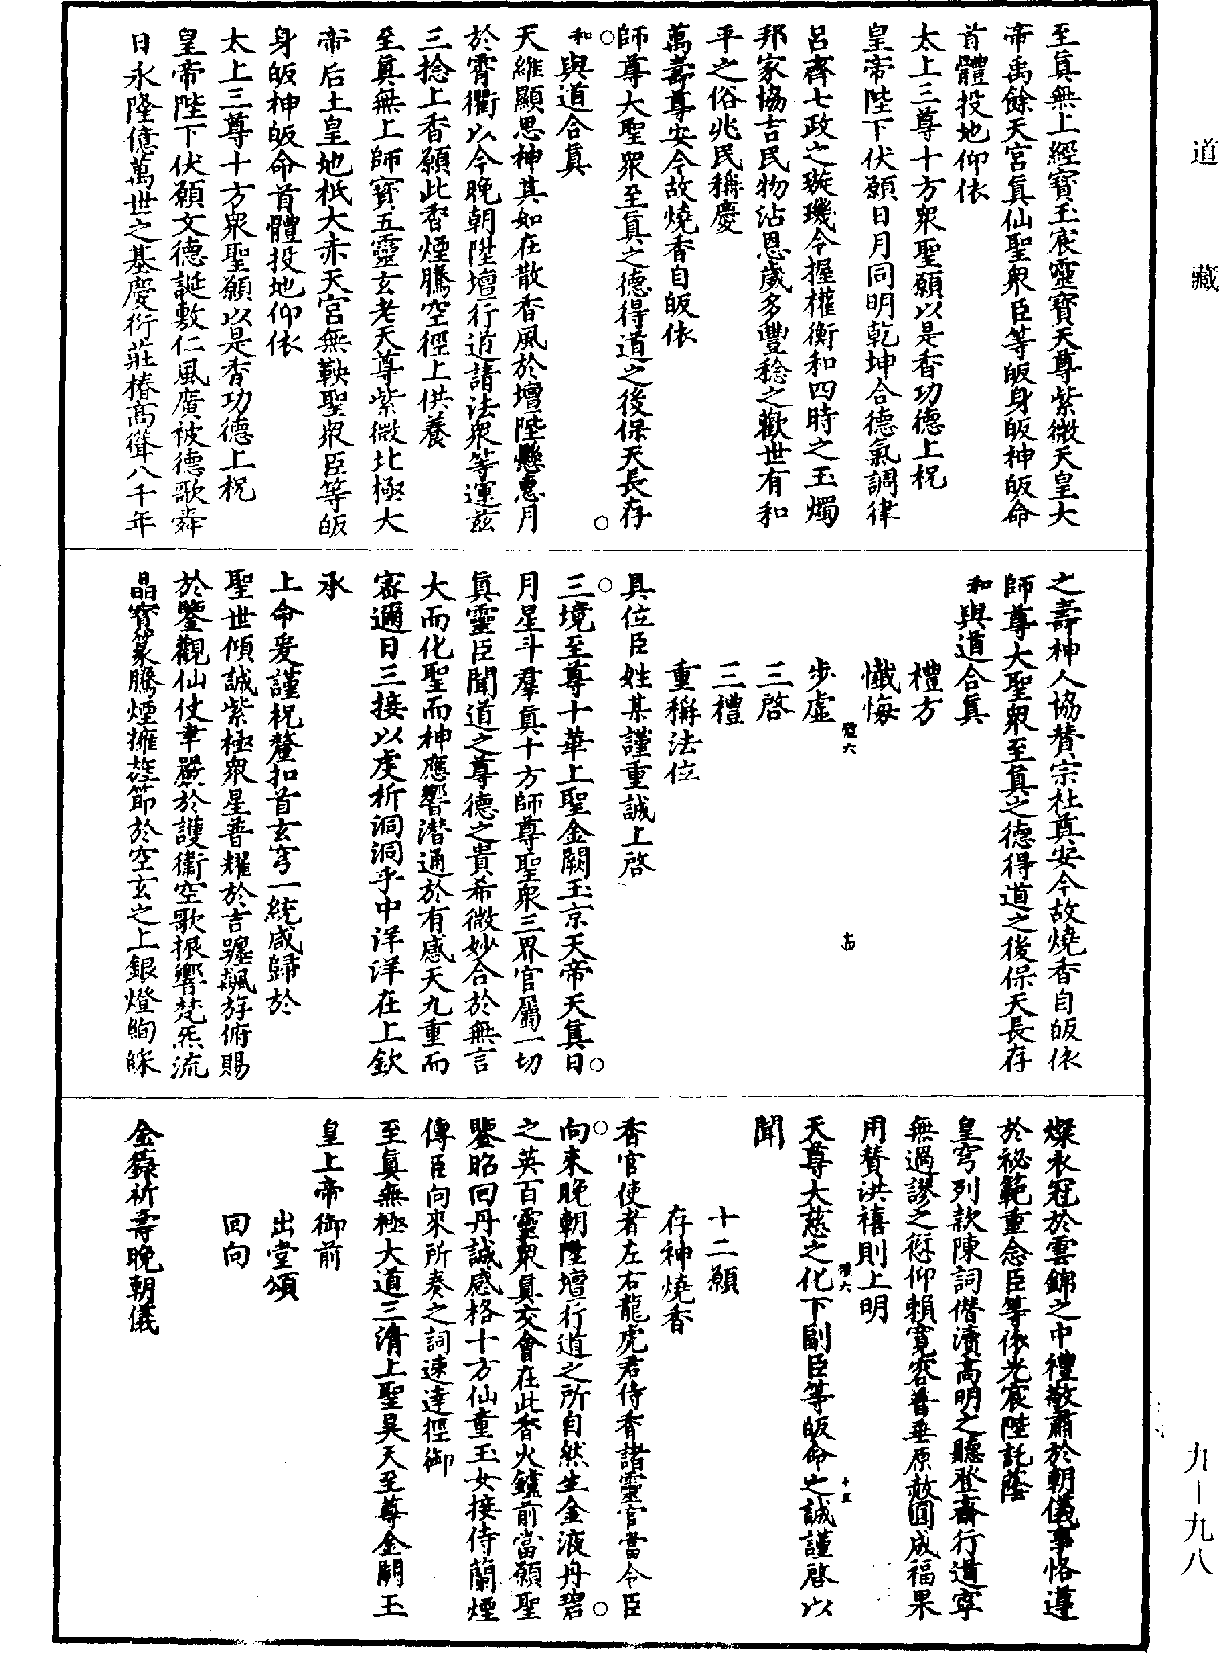 道藏
至真無上經寶玉宸靈寶天尊紫微天皇大
帝禹餘天宮真仙聖衆臣等皈身皈神皈命
首體投地仰依
太上三尊十方衆聖願以是香功德上祝
皇帝陛下伏願日月同明乾坤合德氣調律
呂齊七政之璇璣令握權衡和四時之玉燭
邦家協吉民物沾恩歲多豐稔之歡世有和
平之俗兆民稱慶
萬壽尊安今故燒香自皈依
師尊大聖衆至真之德得道之後保天長存
和與道合真
天維顯思神其如在散香風於壇陛懸惠月
於霄衢以今晚朝陞壇行道諸法衆等運茲
三捻上香願此香煙騰空徑上供養
至真無上師寶五靈玄老天尊紫微北極大
帝后土皇地祇大赤天宮無鞅聖衆臣等皈
身皈神皈命首體投地仰依
太上三尊十方衆聖願以是香功德上祝
皇帝陛下伏願文德誕敷仁風廣被德歌舜
日永隆億萬世之基慶衍莊椿高聳八千年
之壽神人協贊宗社奠安今故燒香自皈依
師尊大聖衆至真之德得道之後保天長存
和與道合真
禮方
懺悔
步虛
三啓
三禮
重稱法位
具位臣姓某謹重誠上啓
三境至尊十華上聖金闕玉京天帝天真日
月星斗羣真十方師尊聖衆三界官屬一切
真靈臣聞道之尊德之貴希微妙合於無言
大而化聖而神應響潛通於有感天九重而
密邇日三接以虔祈洞洞乎中洋洋在上欽
承
上命爰謹祝釐扣首玄穹一統咸歸於
聖世傾誠紫極衆星普耀於吉躔飆斿俯賜
於鑒觀仙仗聿嚴於護衛空歌振響梵炁流
晶寶篆騰煙擁旌節於空玄之上銀燈絢彩
燦衣冠於雲錦之中禮敬肅於朝儀事恪遵
於祕範重念臣等依光宸陛託蔭
皇穹列款陳詞僭瀆高明之聽登齋行道寧
無過謬之愆仰賴寬容普垂原赦圓成福果
用贊洪禧則上明
天尊大慈之化下副臣等皈命之誠謹啓以
聞
十二願
存神燒香
香官使者左右龍虎君侍香諸靈官當令臣
向來晚朝陞壇行道之所自然生金液丹碧
之英百靈衆真交會在此香火鑪前當願聖
鑒昭回丹誠感格十方仙童玉女接侍蘭煙
傳臣向來所奏之詞速達徑御
至真無極大道三清上聖昊天至尊金闕玉
皇上帝御前
出堂頌
回向
金籙祈壽晚朝儀
九—九八